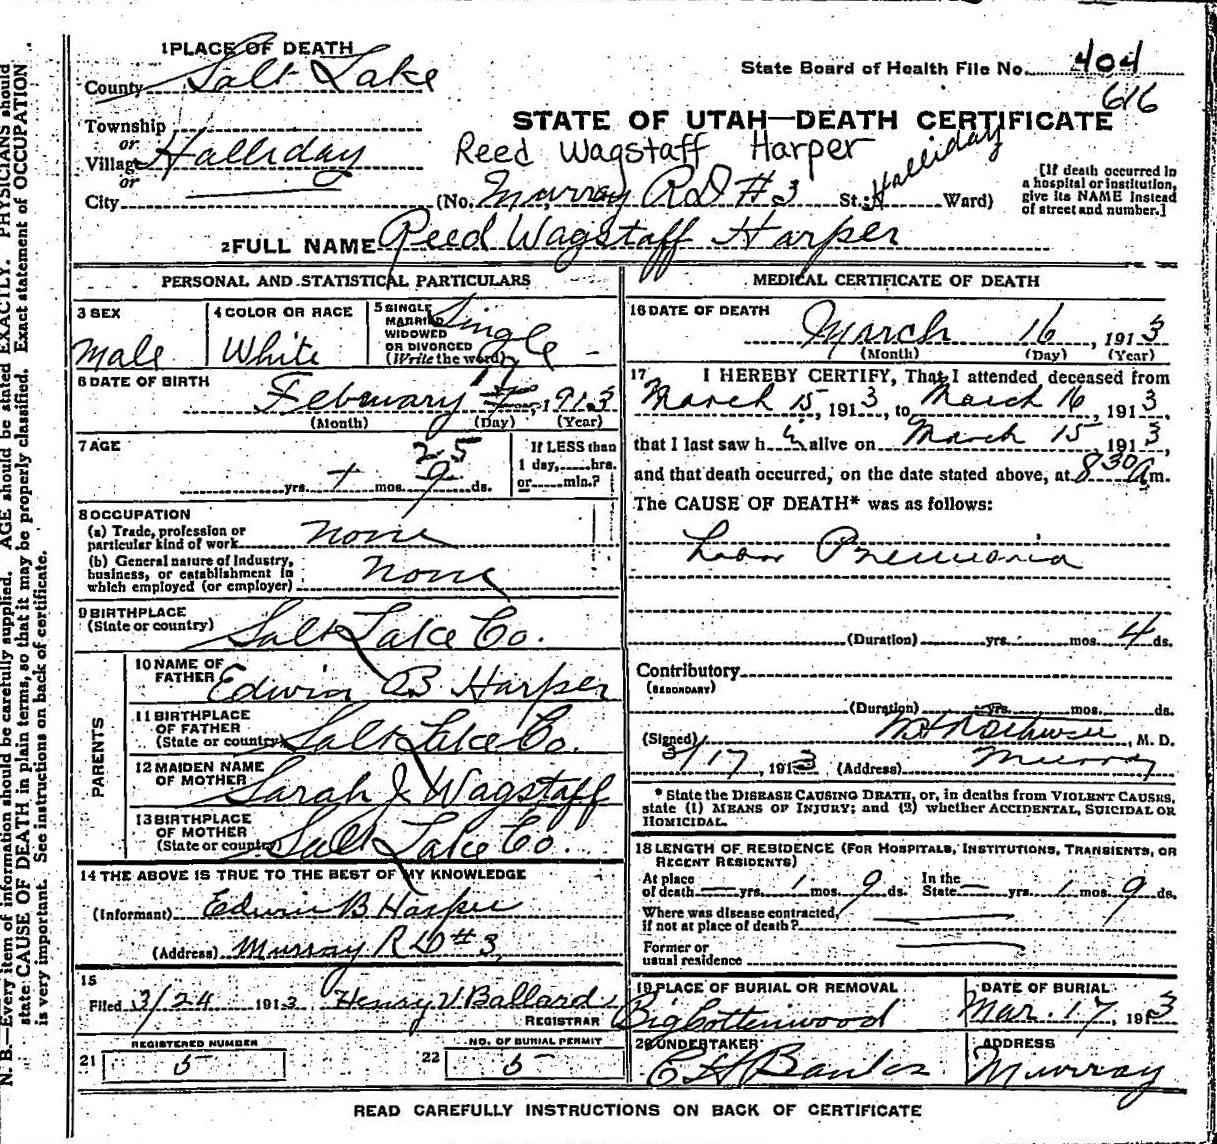 N. B.—Every item of information should be carefully supplied. AGE should be stated EXACTLY. PHYSICIANS should
state CAUSE OF DEATH in plain terms, so that it may be properly classified. Exact statement of OCCUPATION
is very important. See instructions on back of certificate.
1 PLACE OF DEATH
County Salt Lake
State Board of Health File No. 404
616
Township
or
Village Halliday
or
City
STATE OF UTAH—DEATH CERTIFICATE
Reed Wagstaff Harper
(No. Murray RD #3 St.; Halliday Ward)
[If death occurred in
a hospital or institution,
give its NAME instead
of street and number.]
2 FULL NAME Reed Wagstaff Harper
PERSONAL AND STATISTICAL PARTICULARS
3 SEX
Male
4 COLOR OR RACE
White
5 SINGLE
MARRIED
WIDOWED
OR DIVORCED
(Write the word)
Single
6 DATE OF BIRTH
February 17 7, 1913
(Month) (Day) (Year)
7 AGE
25
yrs. 1 mos. 9 ds.
If LESS than
1 day, hrs.
or min.?
8 OCCUPATION
(a) Trade, profession or
particular kind of work none
(b) General nature of industry,
business, or establishment in
which employed (or employer) none
9 BIRTHPLACE
(State or country) Salt Lake Co.
PARENTS
10 NAME OF
FATHER Edwin B Harper
11 BIRTHPLACE
OF FATHER
(State or country) Salt Lake Co.
12 MAIDEN NAME
OF MOTHER Sarah J Wagstaff
13 BIRTHPLACE
OF MOTHER
(State or country) Salt Lake Co.
14 THE ABOVE IS TRUE TO THE BEST OF MY KNOWLEDGE
(Informant) Edwin B Harper
(Address) Murray RD #3
15
Filed 3/24 1913 Henry V. Ballard
REGISTRAR
21 REGISTERED NUMBER
5
22 NO. OF BURIAL PERMIT
5
MEDICAL CERTIFICATE OF DEATH
16 DATE OF DEATH
March 16, 1913
(Month) (Day) (Year)
17 I HEREBY CERTIFY, That I attended deceased from
March 15, 1913, to March 16, 1913,
that I last saw h im alive on March 15 1913,
and that death occurred, on the date stated above, at 8 30 Am.
The CAUSE OF DEATH* was as follows:
Pneumonia
(Duration) yrs. mos. 4 ds.
Contributory
(SECONDARY)
(Duration) yrs. mos. ds.
(Signed) M. D.
3/17, 1913 (Address) Murray
* State the DISEASE CAUSING DEATH, or, in deaths from VIOLENT CAUSES,
state (1) MEANS OF INJURY; and (2) whether ACCIDENTAL, SUICIDAL OR
HOMICIDAL.
18 LENGTH OF RESIDENCE (FOR HOSPITALS, INSTITUTIONS, TRANSIENTS, OR
RECENT RESIDENTS)
At place
of death — yrs. 1 mos. 9 ds. In the
State — yrs. 1 mos. 9 ds.
Where was disease contracted,
if not at place of death?
Former or
usual residence
19 PLACE OF BURIAL OR REMOVAL
Big Cottenwood
DATE OF BURIAL
Mar. 17, 1913
20 UNDERTAKER
ADDRESS
Murray
READ CAREFULLY INSTRUCTIONS ON BACK OF CERTIFICATE